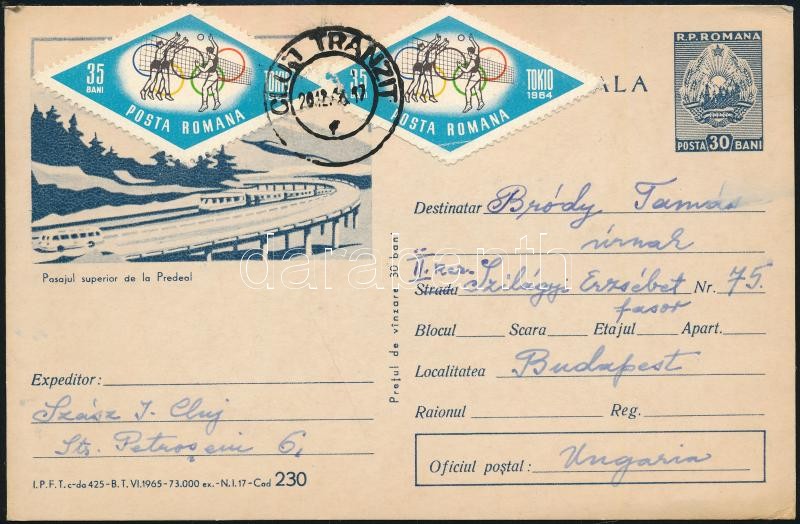 35
BANI
TOKIO
POSTA ROMANA
35
TOKIO
1964
POSTA ROMANA
CLUJ TRANZIT
ALA
R.P. ROMANA
POSTA 30 BANI
Pasajul superior de la Predeal
darabanth
Prețul de vînzare 30 bani
Destinatar Bródy Tamás
úrnak
II. ker.
Strada Szilágyi Erzsébet Nr. 75.
fasor
Blocul Scara Etajul Apart.
Localitatea Budapest
Raionul Reg.
Oficiul poștal: Ungaria
Expeditor:
Szász J. Cluj
Str. Petroșeni 6,
I.P.F.T. c-da 425 - B.T. VI.1965 - 73.000 ex. - N.I. 17 - Cod 230